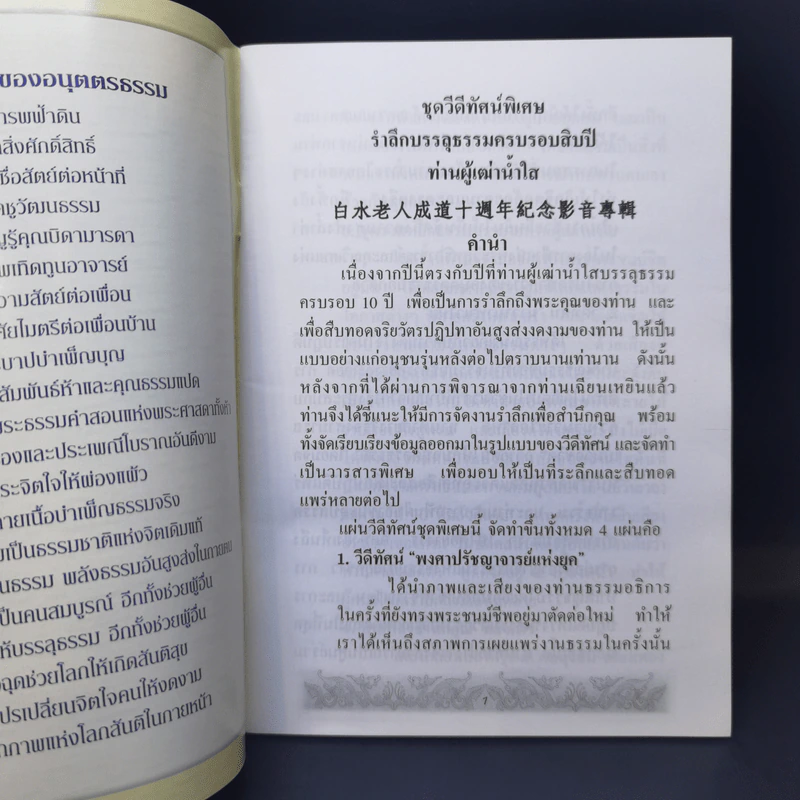 ของอนุตตรธรรม
ารพฟ้าดิน
สิ่งศักดิ์สิทธิ์
ซื่อสัตย์ต่อหน้าที่
ชูวัฒนธรรม
รู้คุณบิดามารดา
พเทิดทูนอาจารย์
วามสัตย์ต่อเพื่อน
ศัยไมตรีต่อเพื่อนบ้าน
บาปบำเพ็ญบุญ
สัมพันธ์ห้าและคุณธรรมแปด
พระธรรมคำสอนแห่งพระศาสดาทั้งห้า
องและประเพณีโบราณอันดีงาม
ระจิตใจให้ผ่องแผ้ว
กายเนื้อบำเพ็ญธรรมจริง
มเป็นธรรมชาติแห่งจิตเดิมแท้
นธรรม พลังธรรมอันสูงส่งในกายตน
ป็นคนสมบูรณ์ อีกทั้งช่วยผู้อื่น
ห้บรรลุธรรม อีกทั้งช่วยผู้อื่น
ฉุดช่วยโลกให้เกิดสันติสุข
ปรเปลี่ยนจิตใจคนให้งดงาม
กภาพแห่งโลกสันติในภายหน้า
ชุดวีดีทัศน์พิเศษ
รำลึกบรรลุธรรมครบรอบสิบปี
ท่านผู้เฒ่าน้ำใส
白水老人成道十週年紀念影音專輯
คำนำ
เนื่องจากปีนี้ตรงกับปีที่ท่านผู้เฒ่าน้ำใสบรรลุธรรม
ครบรอบ 10 ปี เพื่อเป็นการรำลึกถึงพระคุณของท่าน และ
เพื่อสืบทอดจริยวัตรปฏิปทาอันสูงส่งงดงามของท่าน ให้เป็น
แบบอย่างแก่อนุชนรุ่นหลังต่อไปตราบนานเท่านาน ดังนั้น
หลังจากที่ได้ผ่านการพิจารณาจากท่านเฉียนเหยินแล้ว
ท่านจึงได้ชี้แนะให้มีการจัดงานรำลึกเพื่อสำนึกคุณ พร้อม
ทั้งจัดเรียบเรียงข้อมูลออกมาในรูปแบบของวีดีทัศน์ และจัดทำ
เป็นวารสารพิเศษ เพื่อมอบให้เป็นที่ระลึกและสืบทอด
แพร่หลายต่อไป
แผ่นวีดีทัศน์ชุดพิเศษนี้ จัดทำขึ้นทั้งหมด 4 แผ่นคือ
1. วีดีทัศน์ “พงศาปรัชญาจารย์แห่งยุค”
ได้นำภาพและเสียงของท่านธรรมอธิการ
ในครั้งที่ยังทรงพระชนม์ชีพอยู่มาตัดต่อใหม่ ทำให้
เราได้เห็นถึงสภาพการเผยแพร่งานธรรมในครั้งนั้น